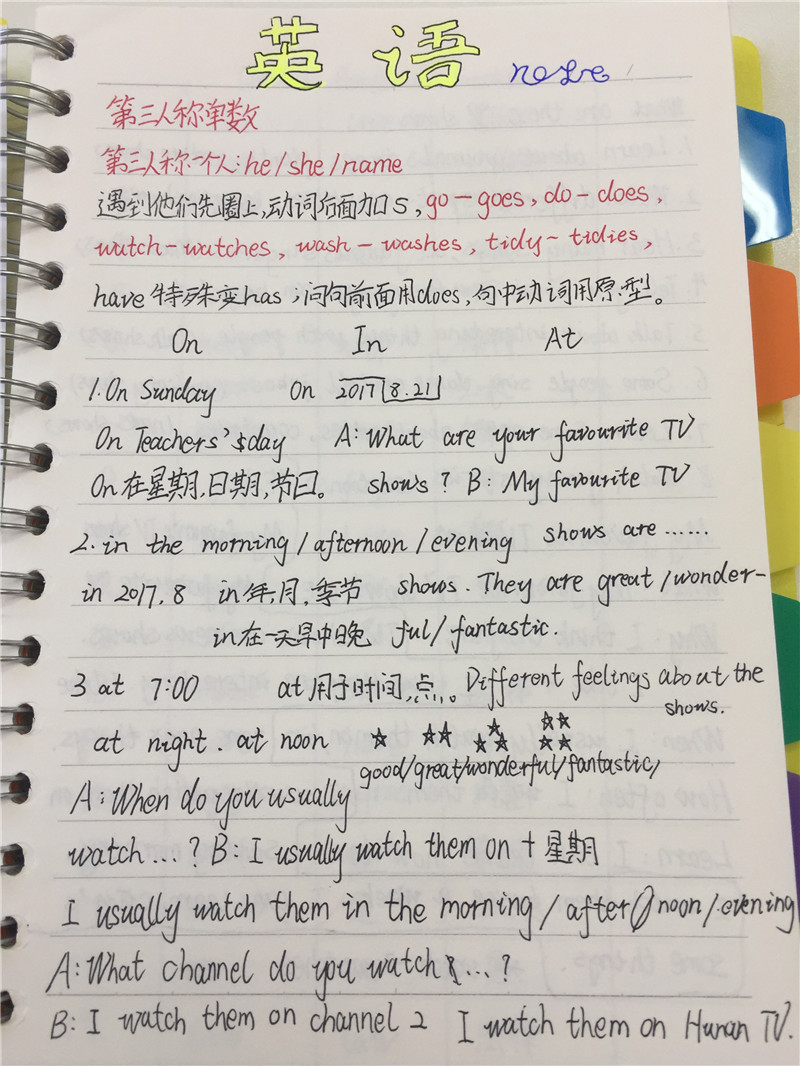 英语 note
第三人称单数
第三人称一个人:he/she/name
遇到他们先圈上,动词后面加s,go-goes,do-does,
watch-watches,wash-washes,tidy-tidies,
have特殊变has;问句前面用does,句中动词用原型。
On In At
1.On Sunday On 2017 8.21
On Teachers' day A:What are your favourite TV
On在星期,日期,节日。 shows? B:My favourite TV
2.in the morning/afternoon/evening shows are……
in 2017.8 in年,月,季节 shows. They are great/wonder-
in在一天早中晚 ful/fantastic.
3 at 7:00 at用于时间点。 Different feelings about the
shows.
at night. at noon ★ ★★ ★★★ ★★★★
good/great/wonderful/fantastic/
A:When do you usually
watch...? B:I usually watch them on+星期
I usually watch them in the morning/afternoon/evening
A:What channel do you watch ...?
B:I watch them on channel 2 I watch them on Hunan TV.